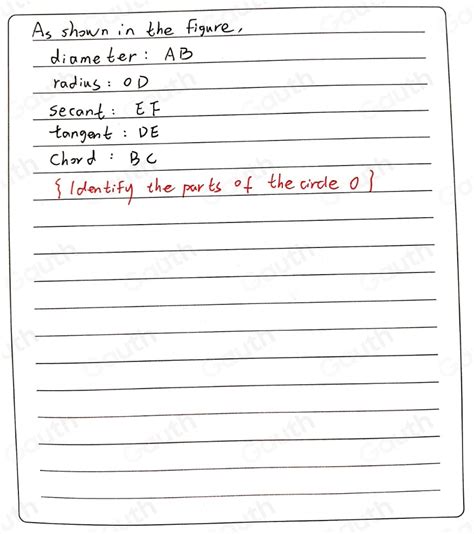 As shown in the figure,
diameter: AB
radius: OD
secant: EF
tangent: DE
Chord: BC
{Identify the parts of the circle O}